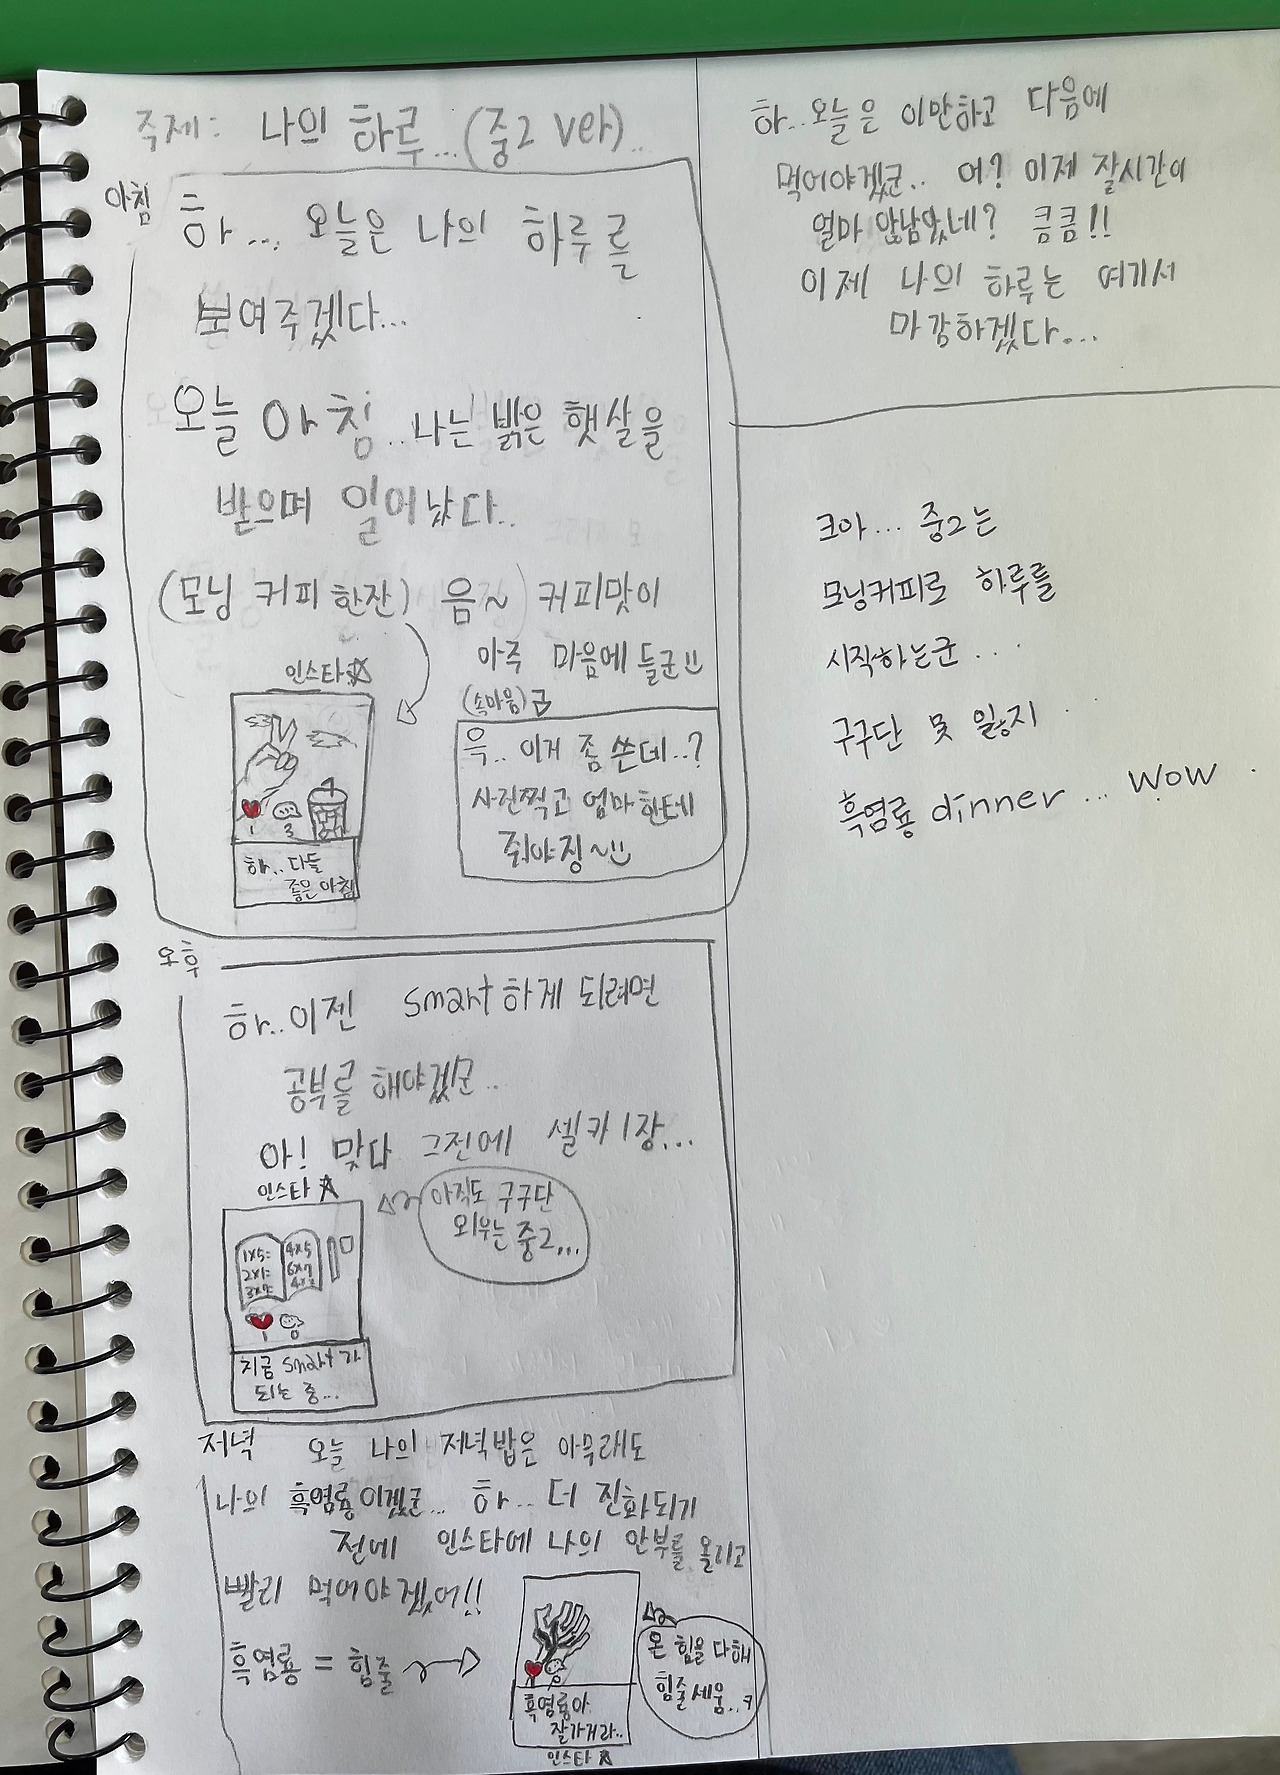 주제: 나의 하루...(중2 ver)..
아침
하... 오늘은 나의 하루를
보여주겠다...
오늘 아침..나는 밝은 햇살을
받으며 일어났다..
(모닝 커피 한잔) 음~ 커피맛이
아주 마음에 들군
인스타
하..다들
좋은아침
(속마음)
윽.. 이거 좀 쓴데..?
사진찍고 엄마한테
줘야징~
오후
하..이젠 smart하게 되려면
공부를 해야겠군..
아! 맞다 그전에 셀카1장...
인스타
1x5= 4x5
2x1= 6x7
3x7=
지금 smart가
되는 중...
아직도 구구단
외우는 중2...
저녁 오늘 나의 저녁밥은 아무래도
나의 흑염룡이겠군... 하.. 더 진화되기
전에 인스타에 나의 안부를 올리고
빨리 먹어야겠어!!
흑염룡 = 힘줄
흑염룡아
잘가거라..
인스타
온 힘을 다해
힘줄세움..ㅋ
하..오늘은 이만하고 다음에
먹어야겠군.. 어? 이제 잘시간이
얼마 않남았네? 큼큼!!
이제 나의 하루는 여기서
마감하겠다...
크아... 중2는
모닝커피로 하루를
시작하는군...
구구단 못 잃지
흑염룡 dinner ... wow